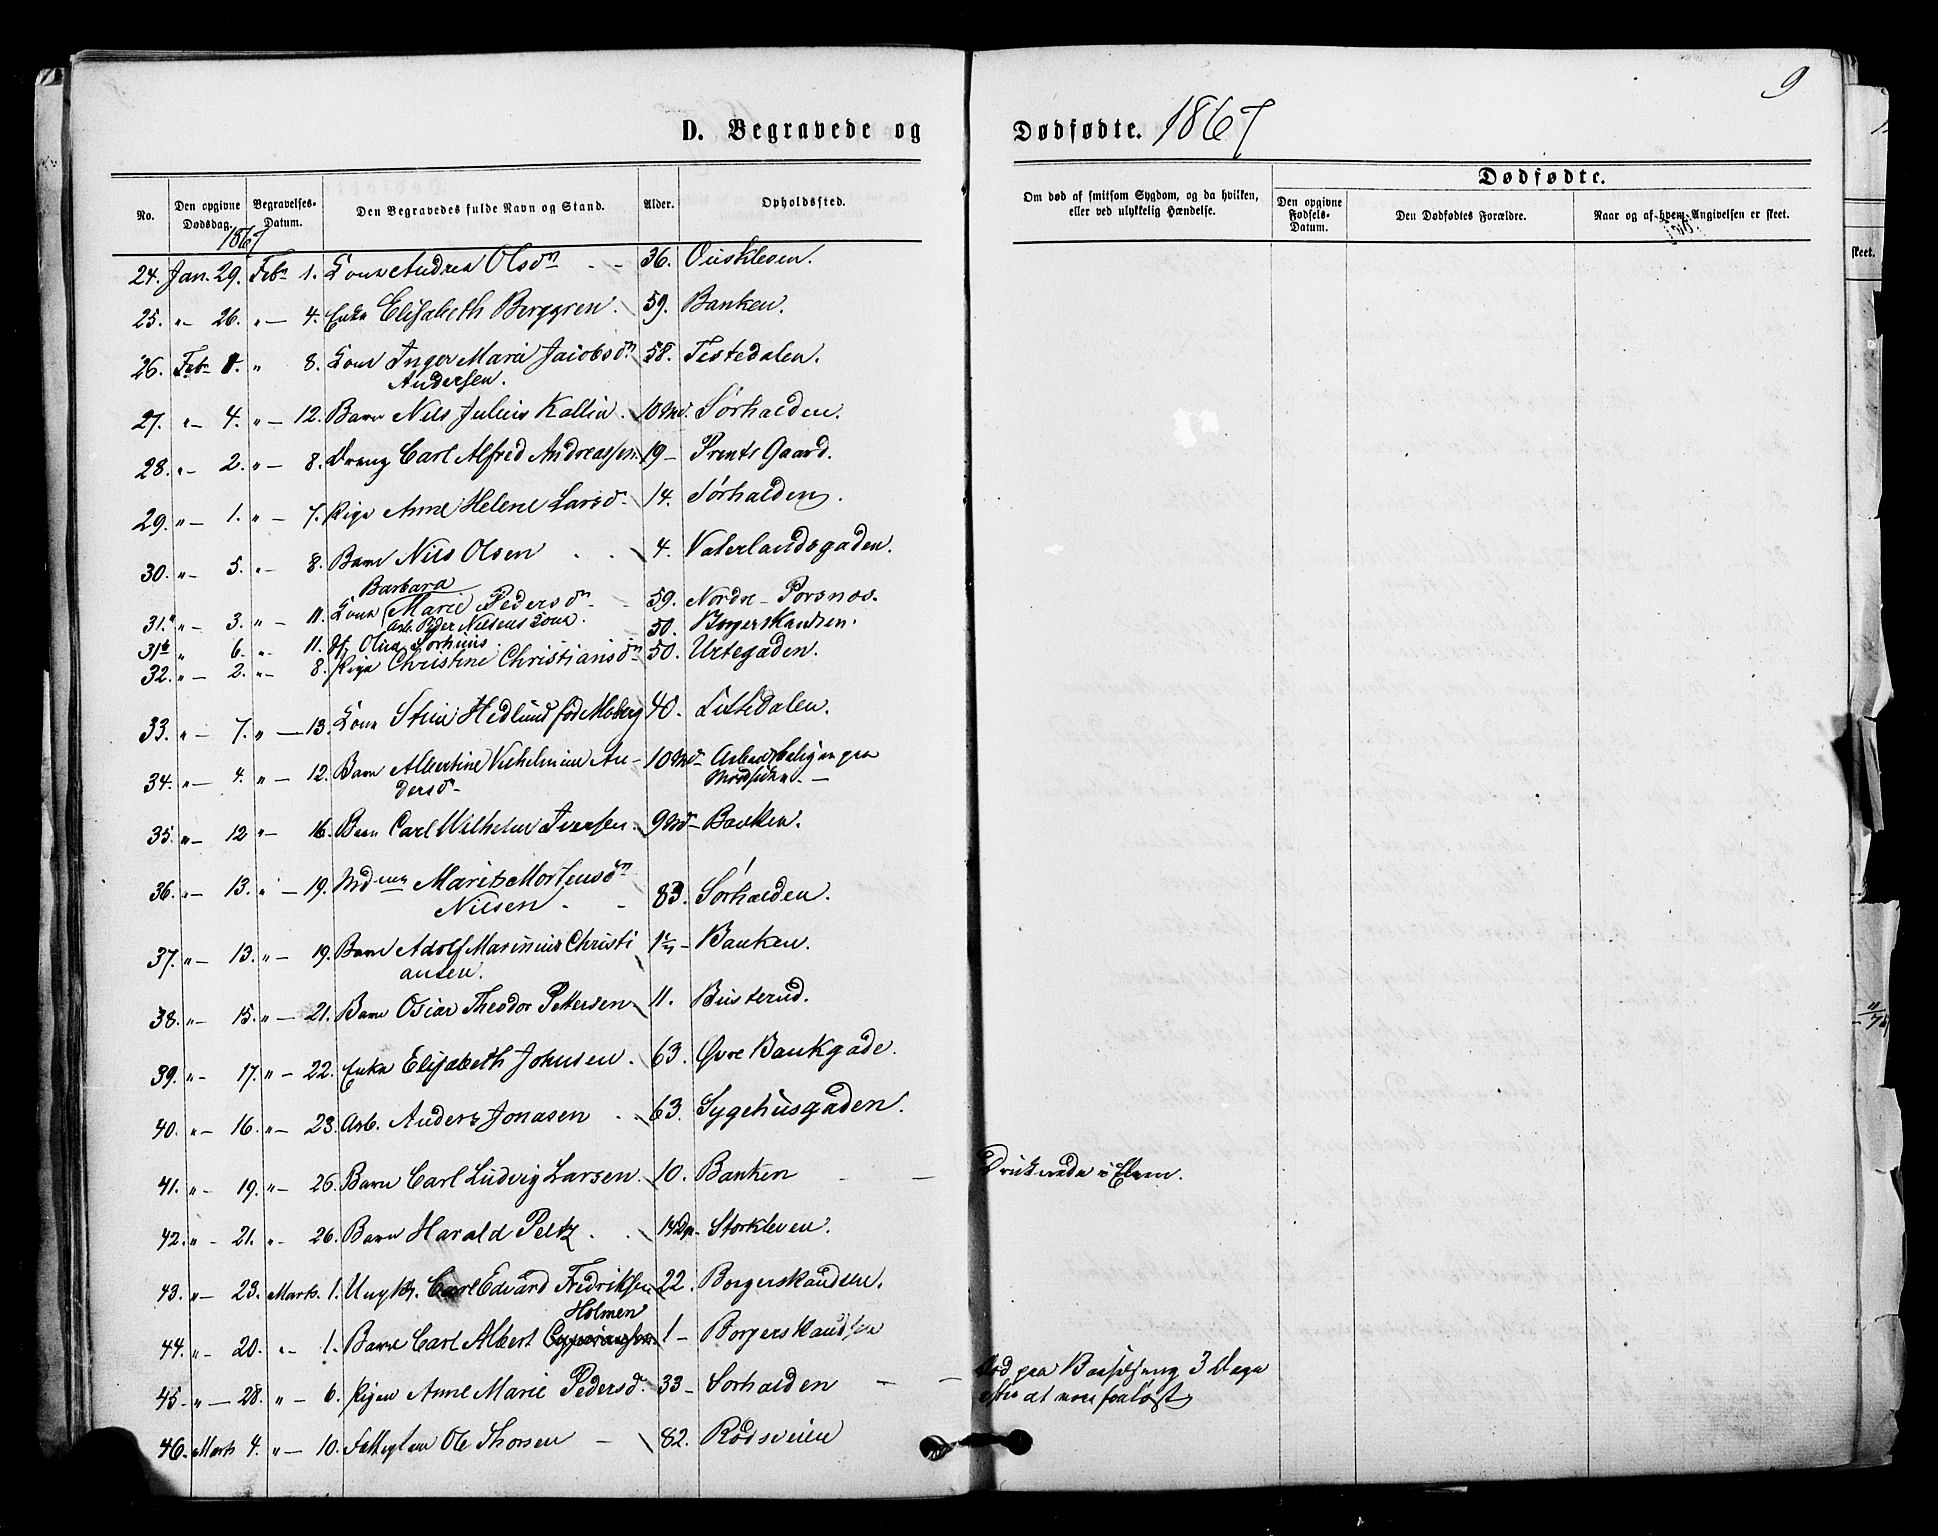 9
D. Begravede og Dødfødte. 1867
No. Den opgivne Dødsdag. Begravelses-Datum. Den Begravedes fulde Navn og Stand. Alder. Opholdssted. Om død af smitsom Sygdom, og da hvilken, eller ved ulykkelig Hændelse. Dødfødte. Den opgivne Fødsels-Datum. Den Dødfødtes Forældre. Naar og af hvem Angivelsen er skeet.
1867
24. Jan. 29. Febr 1. Kone Andrea Olsdn - - 36. Ouskleven.
25. " - 26. " - 4. Enke Elisabeth Berggren. 59. Banken.
26. Febr 1. " 8. Kone Inger Marie Jacobsdn 58. Tistedalen.
Andersen.
27. " - 4. " - 12. Barn Nils Julius Kallin. 10 Md. Sørhalden.
28. " - 2. " - 8. Dreng Carl Alfred Andreassen. 19 - Prents Gaard.
29. " - 1. " - 7. Pige Anne Helene Larsd - 14. Sørhalden.
30. " - 5. " - 8. Barn Nils Olsen . . 4. Vaterlandsgaden.
Barbara
31.a " - 3. " - 11. Kone Marie Pedersdn - 59. Nordre - Porsnes.
Arb. Peder Nilsens Kone. 50. Borgerskandsen.
31b " 6. " - 11. Olina Sørhuus
32. " - 2. " - 8. Pige Christine Christiansdn 50. Urtegaden.
33. " - 7. " - 13. Kone Stine Hedlund fød Moberg 40. Tistedalen.
34. " - 4. " - 12. Barn Albertine Vilhelmine An- 10 Md - Arbeidsboligen paa
dersd - Nordsiden - -
35. " - 12 " - 16. Barn Carl Wilhelm Iversen. 9 Md - Banken.
36. " - 13. " - 19. Marits Mortensdn
Nilsen - - 83. Sørhalden.
37. " - 13. " - 19. Barn Adolf Marinius Christi 1 - Banken.
ansen.
38. " - 15. " - 21. Barn Oscar Theodor Pettersen 11. Busterud.
39. " - 17. " - 22. Enke Elisabeth Johnsen. 63. Øvre Bankgade.
40. " - 16. " - 23. Arb. Anders Jonasen . 63. Sygehusgaden.
41. " - 19. " - 26. Barn Carl Ludvig Larsen. 10. Banken - - Druknede i Elven.
42. " - 21. " - 26. Barn Harald Peltz . . 14 Dg. Storkleven.
43. " - 23. Marts. 1. Ungk. Carl Edvard Fredriksen 22. Borgerskandsen.
Holmen
44. " - 20. " - 1. Barn Carl Albert 1 - Borgerskandsen
45 " - 28. " - 6. Pigen Anne Marie Pedersd. 33 - Sørhalden - - Død paa Barselseng 3 Dage
efter at være forløst
46. Marts 4. " - 10. Fattiglem Ole Thorsen - 82. Rødsveien